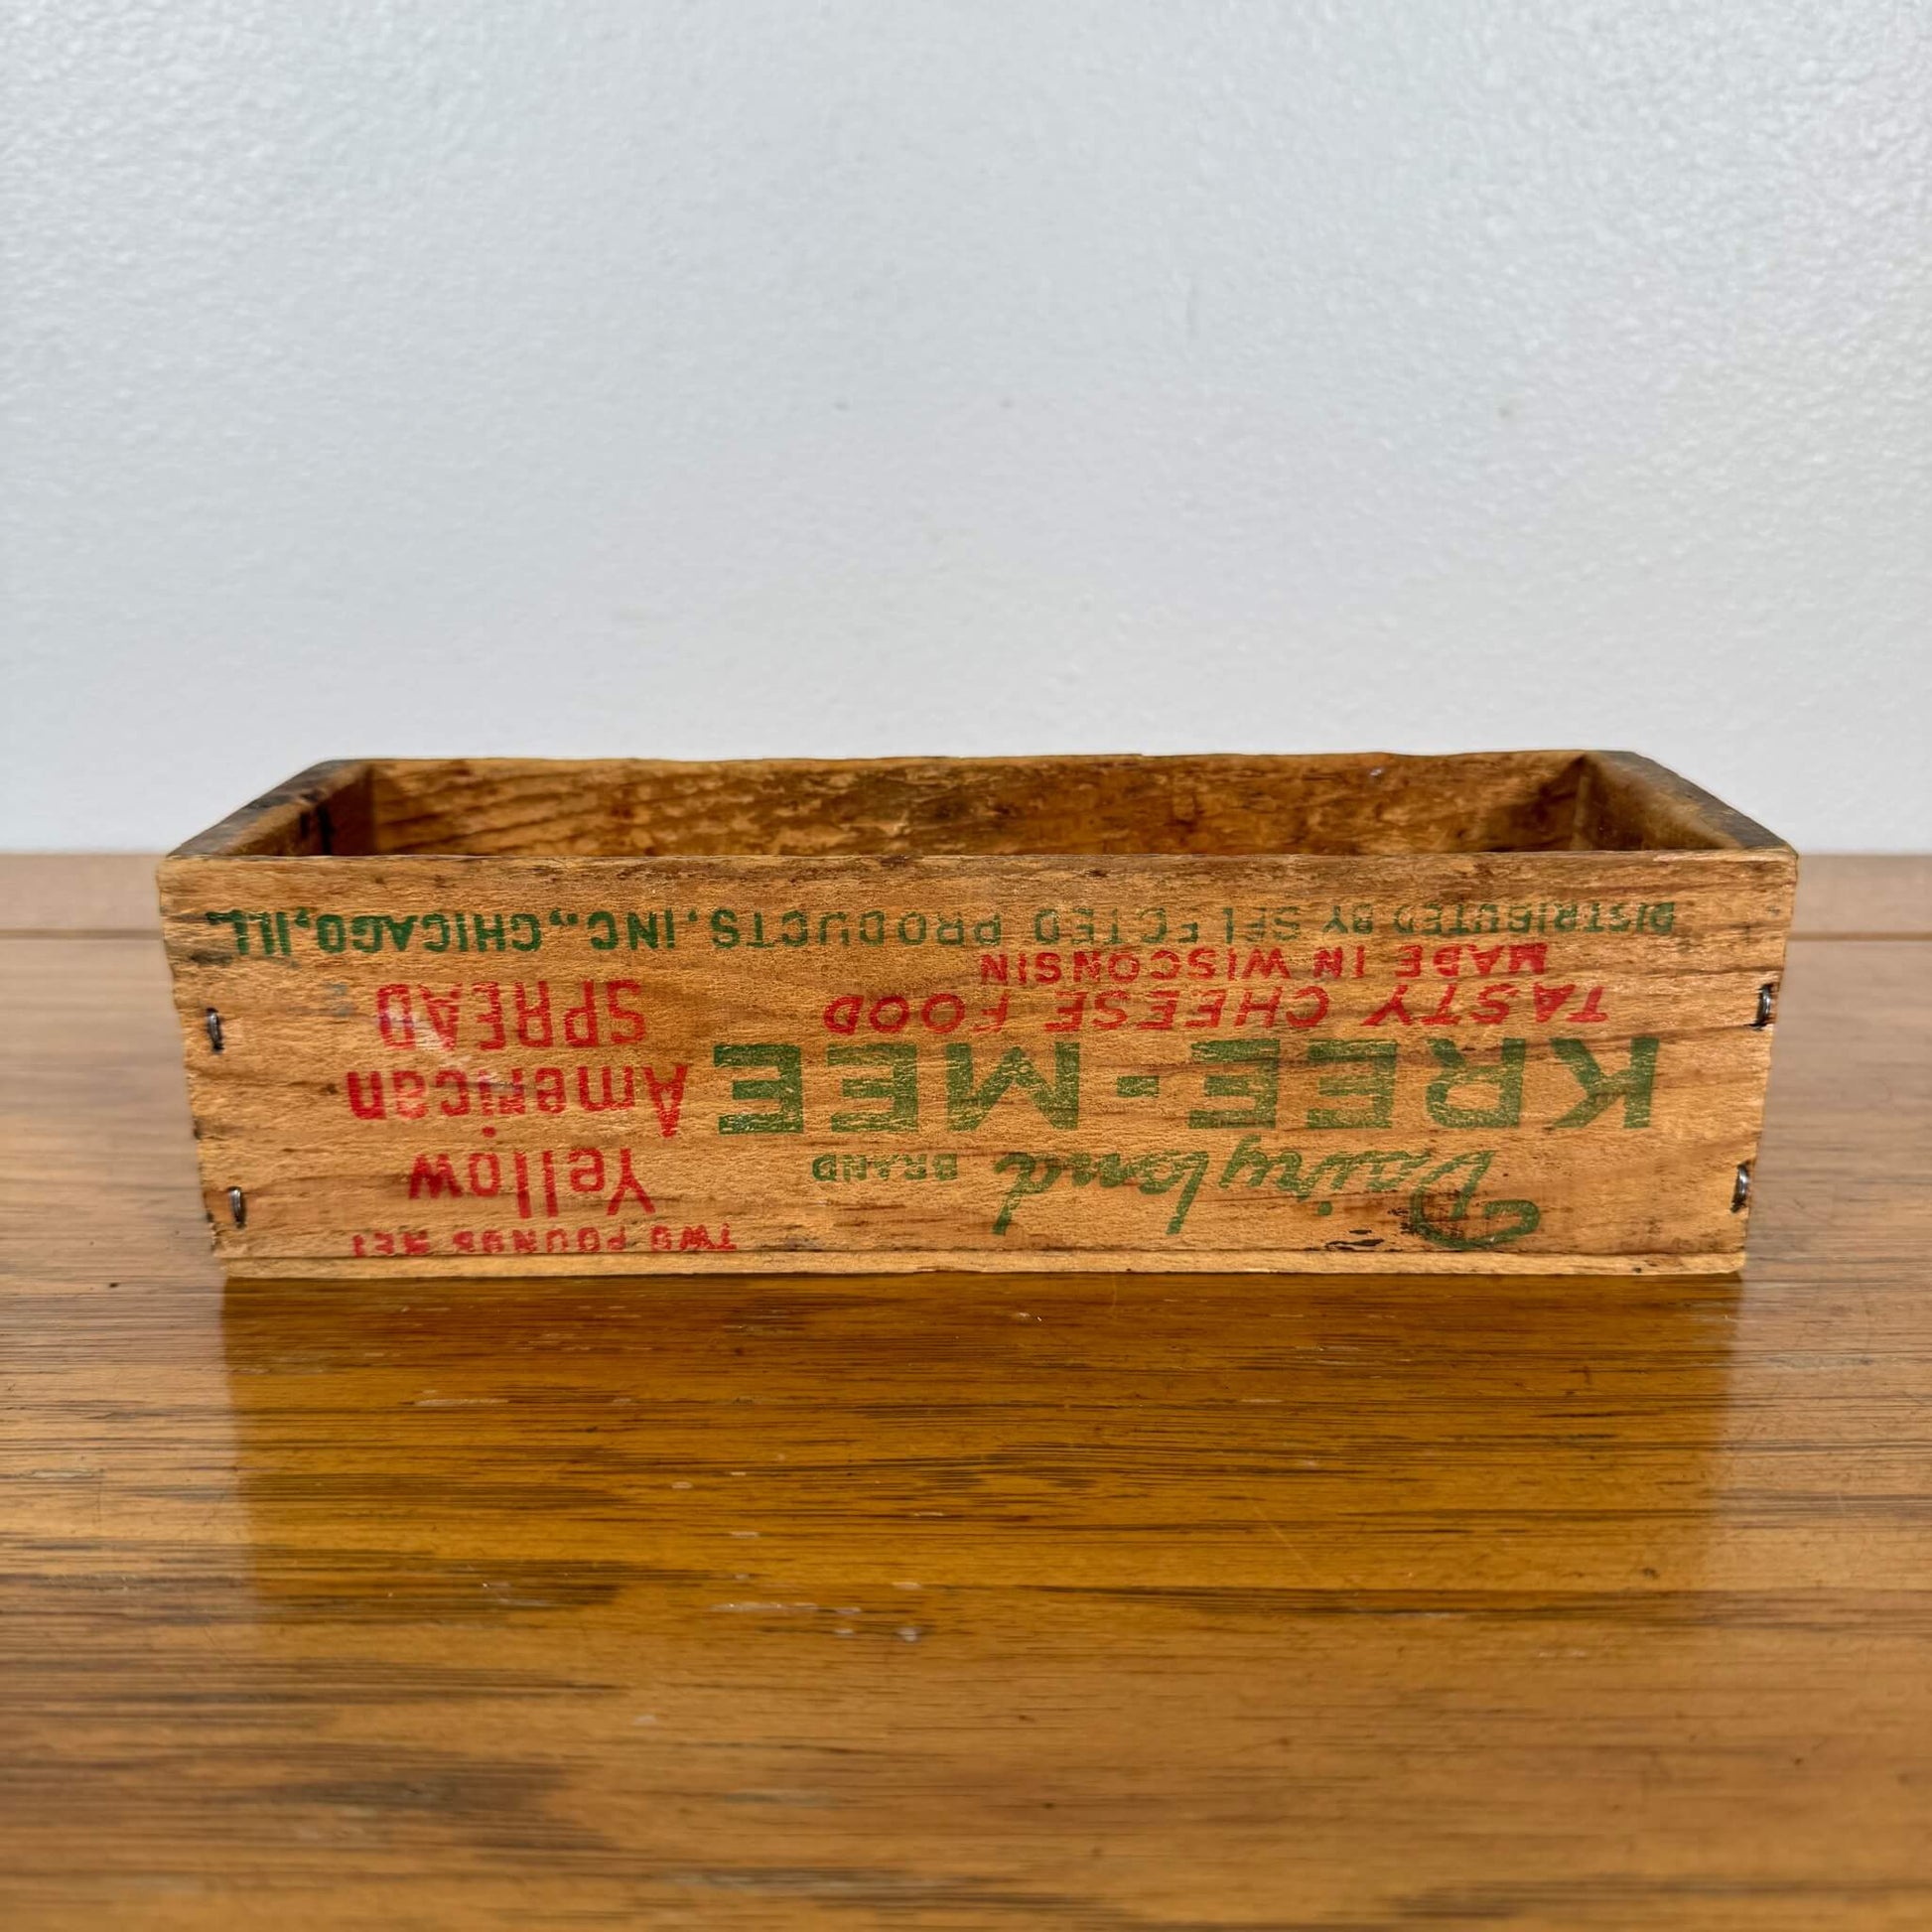 TWO POUNDS NET
Dairyland BRAND
Yellow
KREE-MEE
American
TASTY CHEESE FOOD
SPREAD
MADE IN WISCONSIN
DISTRIBUTED BY SELECTED PRODUCTS, INC., CHICAGO, ILL.